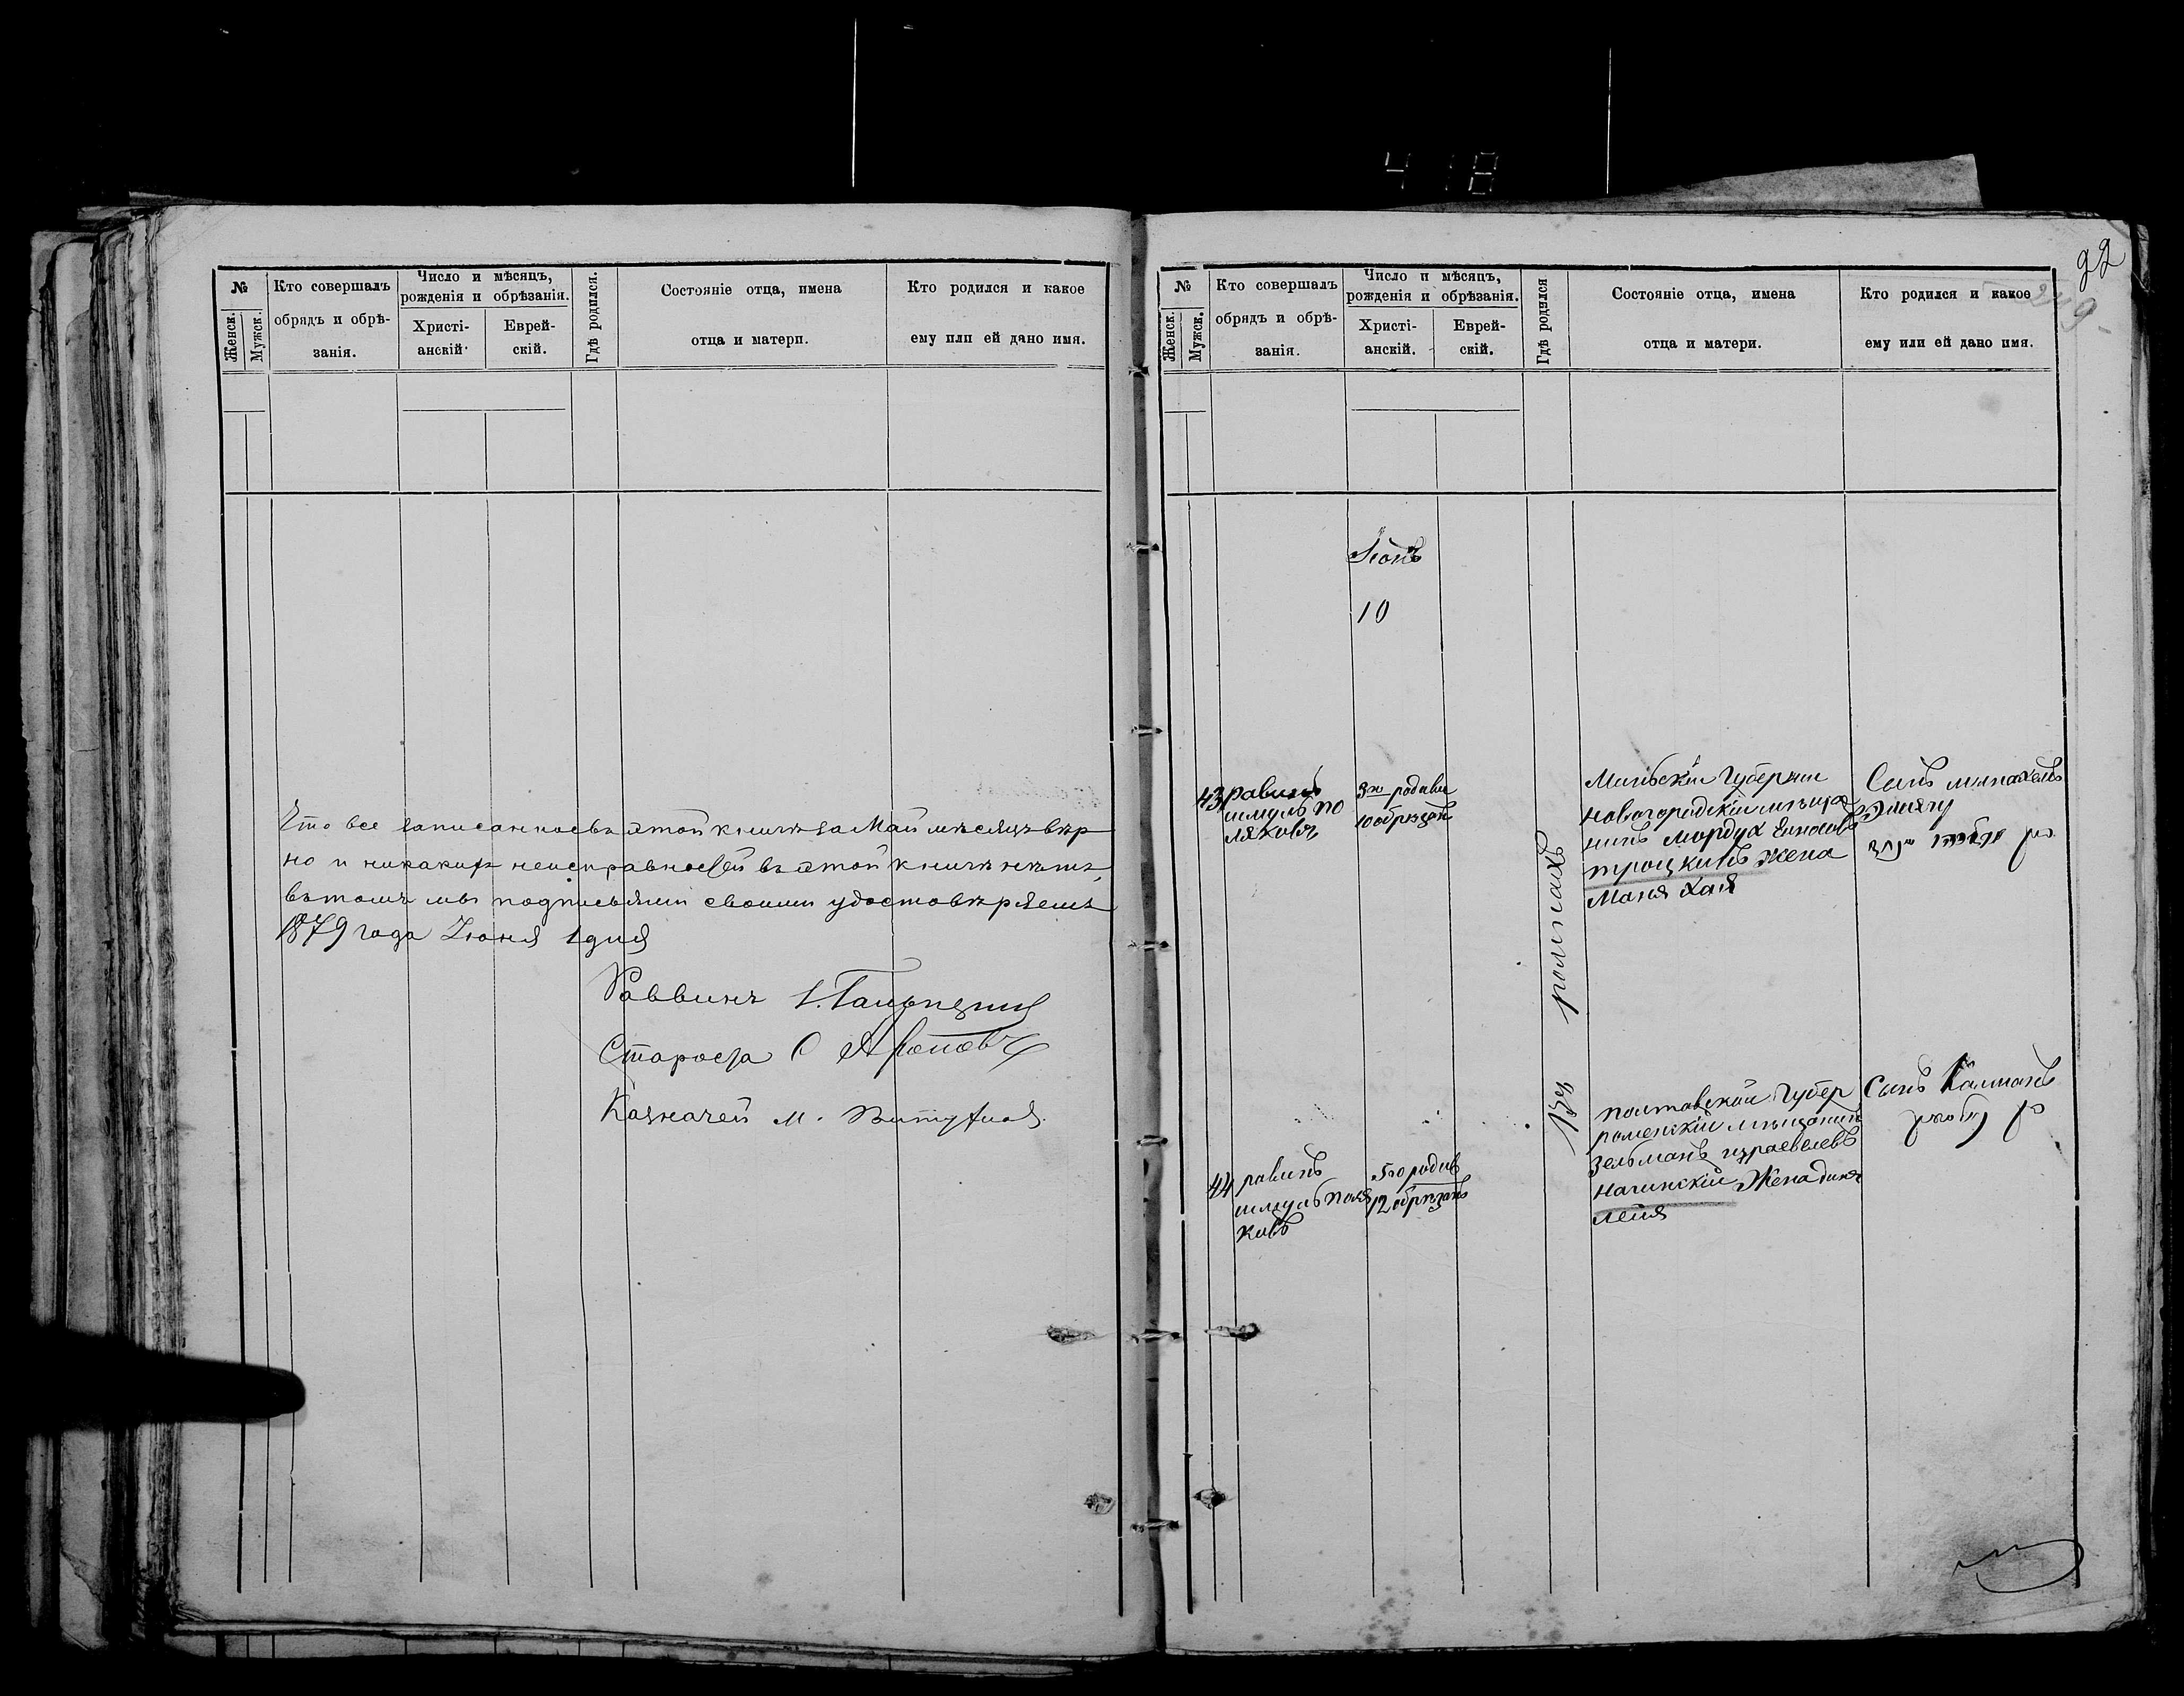 418
92
№
Женск.
Мужск.
Кто совершалъ
обрядъ и обрѣ-
занія.
Число и мѣсяцъ,
рожденія и обрѣзанія.
Христі-
анскій.
Еврей-
скій.
Гдѣ родился.
Состояніе отца, имена
отца и матери.
Кто родился и какое
ему или ей дано имя.
Что все записанное въ этой книгѣ за Май мѣсяцъ вѣр
но и никакихъ неисправностей въ этой книгѣ нѣтъ,
въ томъ мы подписьями своими удостовѣряемъ
1879 года Іюня 1 дня
Раввинъ
Староста С Ароновъ
Казначей М.
№
Женск.
Мужск.
Кто совершалъ
обрядъ и обрѣ-
занія.
Число и мѣсяцъ,
рожденія и обрѣзанія.
Христі-
анскій.
Еврей-
скій.
Гдѣ родился
Состояніе отца, имена
отца и матери.
Кто родился и какое
ему или ей дано имя.
10
43 равинъ
шмуль по
ляковъ
3го родивш
10 обрезан
въ ромнахъ
Минской Губернии
новогородский мѣща
нинъ Мордух
троцкинъ жена
Маня Хая
Сынъ
44 равинъ
шмуль поля
ковъ
5го родив
12 обрезанъ
полтавской Губер
роменский мѣщанинъ
Зельманъ израевлевъ
начинский Жена
лейя
Сынъ Калманъ